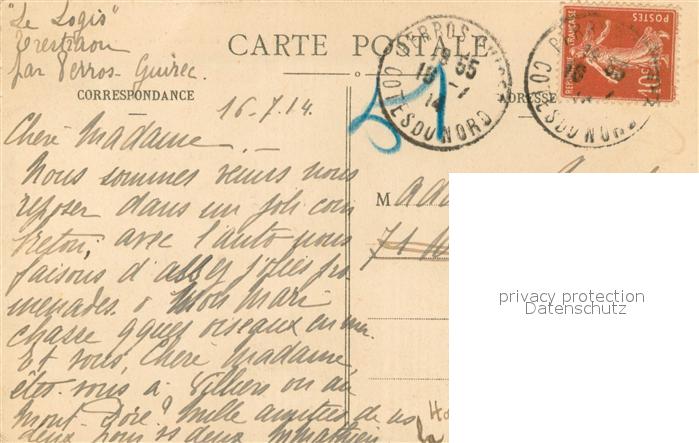 "Le Logis"
Trestraou
par Perros-Guirec.
CARTE POSTALE
CORRESPONDANCE
ADRESSE
PERROS-GUIREC
16 55
16 -7
14
COTES DU NORD
REPUBLIQUE FRANÇAISE
POSTES
10c
16.7.14.
Chère Madame, -
Nous sommes venus nous
reposer dans un joli coin
breton; avec l'auto nous
faisons d'assez jolies pro
menades. Mon mari
chasse qques oiseaux en mer.
Et vous, Chère Madame,
êtes-vous à Villiers ou au
Mont-Dore? Mille amitiés de nos
deux pour vs deux
M
71
privacy protection
Datenschutz